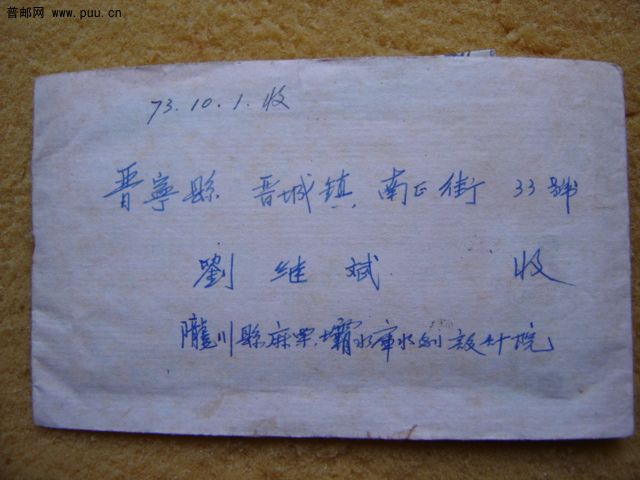 普邮网 www.puu.cn
73.10.1.收
晋寧縣 晋城镇 南正街 33號
劉继斌 收
隴川縣麻栗壩水庫水利設计院